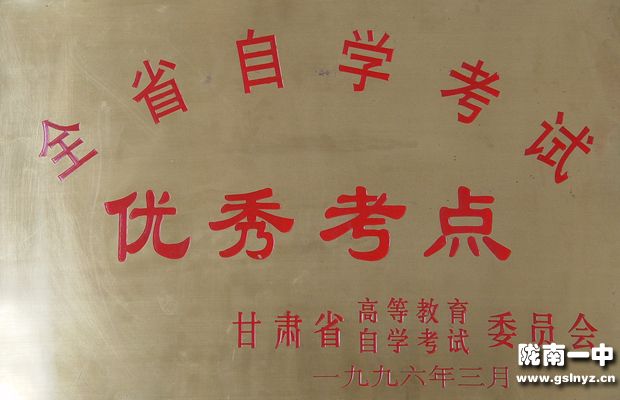 全省自学考试
优秀考点
甘肃省高等教育自学考试委员会
一九九六年三月
陇南一中
www.gslnyz.cn